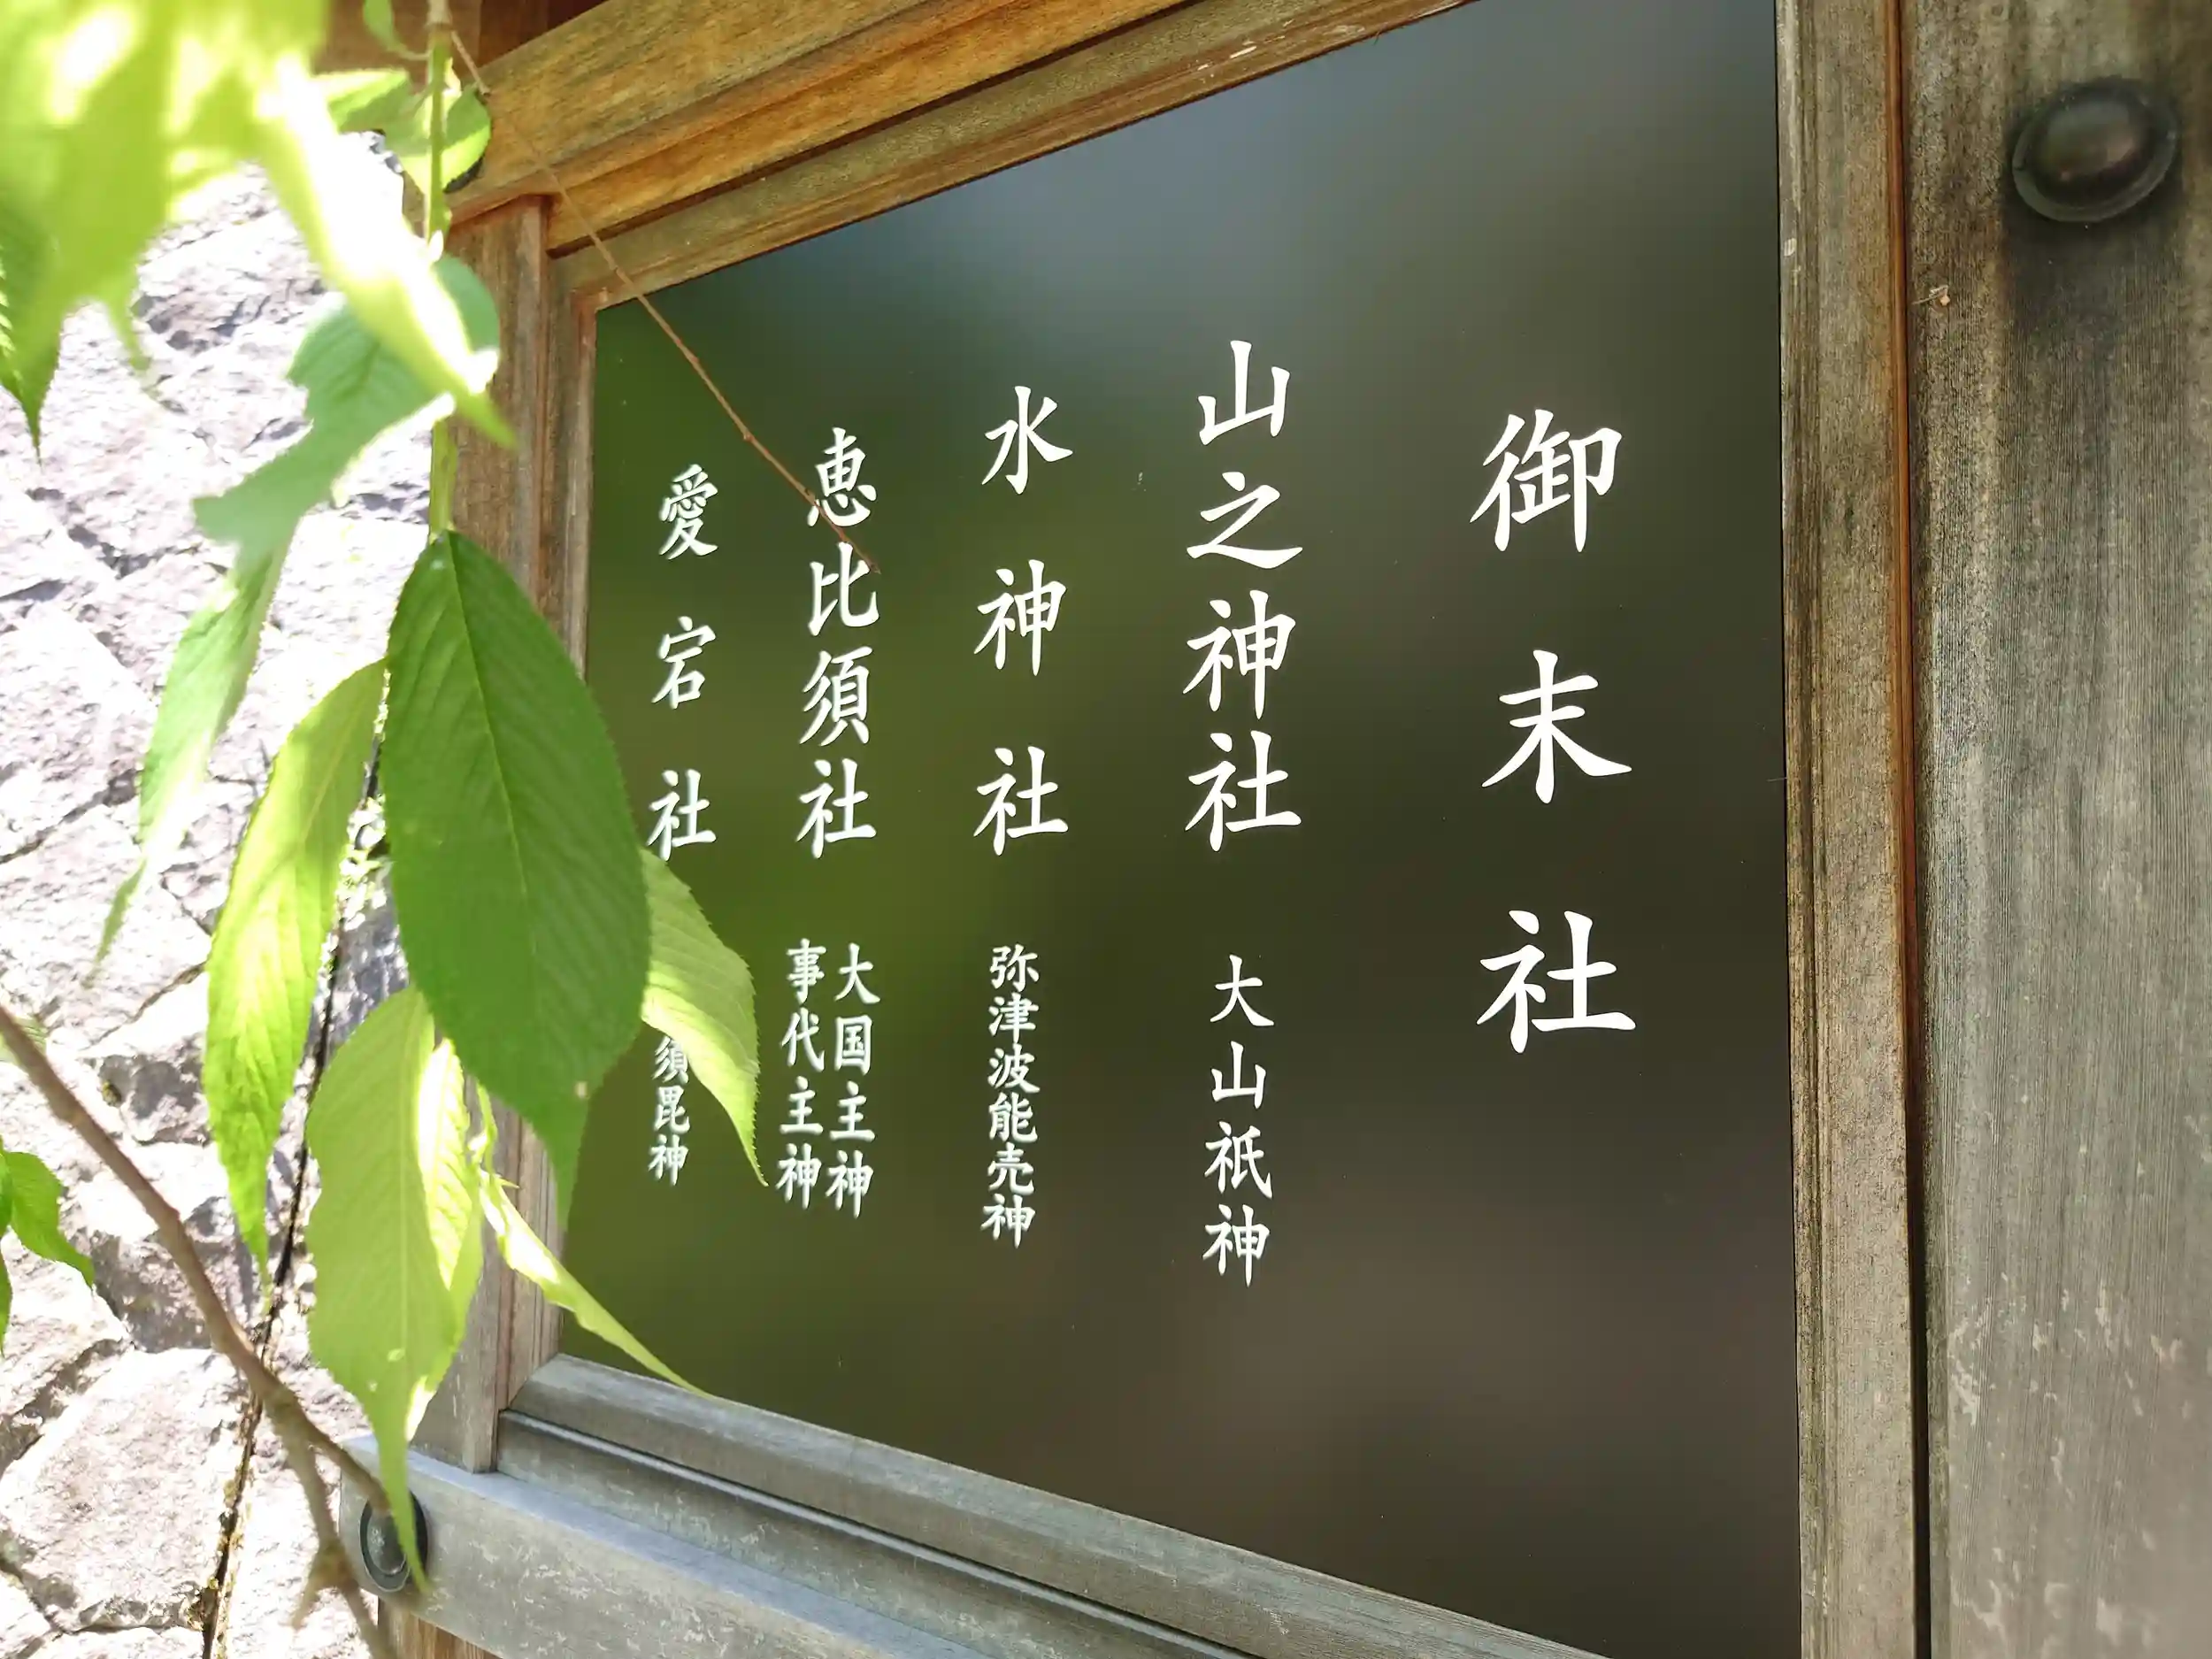 御末社
山之神社 大山祇神
水神社 弥津波能売神
恵比須社 大国主神
事代主神
愛宕社 須毘神